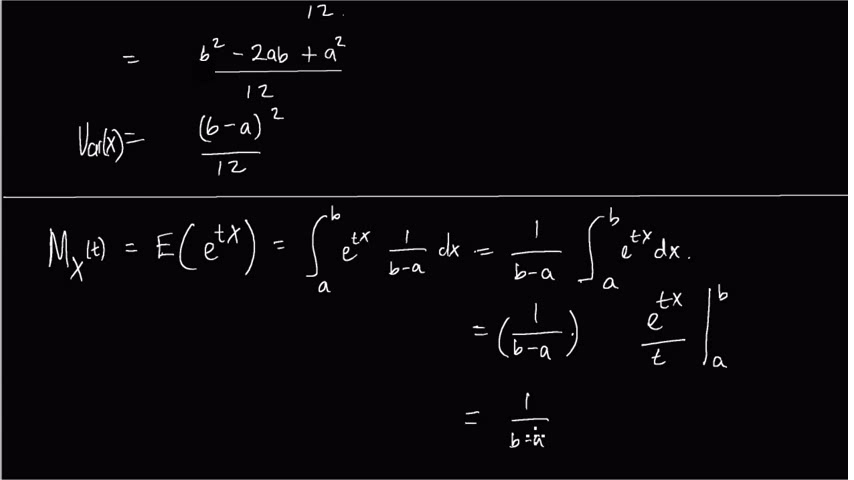 12.
= b² - 2ab + a² / 12
Var(X) = (b-a)² / 12
M_X(t) = E(e^{tX}) = ∫_a^b e^{tx} 1/(b-a) dx = 1/(b-a) ∫_a^b e^{tx} dx.
= (1/(b-a)) e^{tx}/t |_a^b
= 1/(b-a)